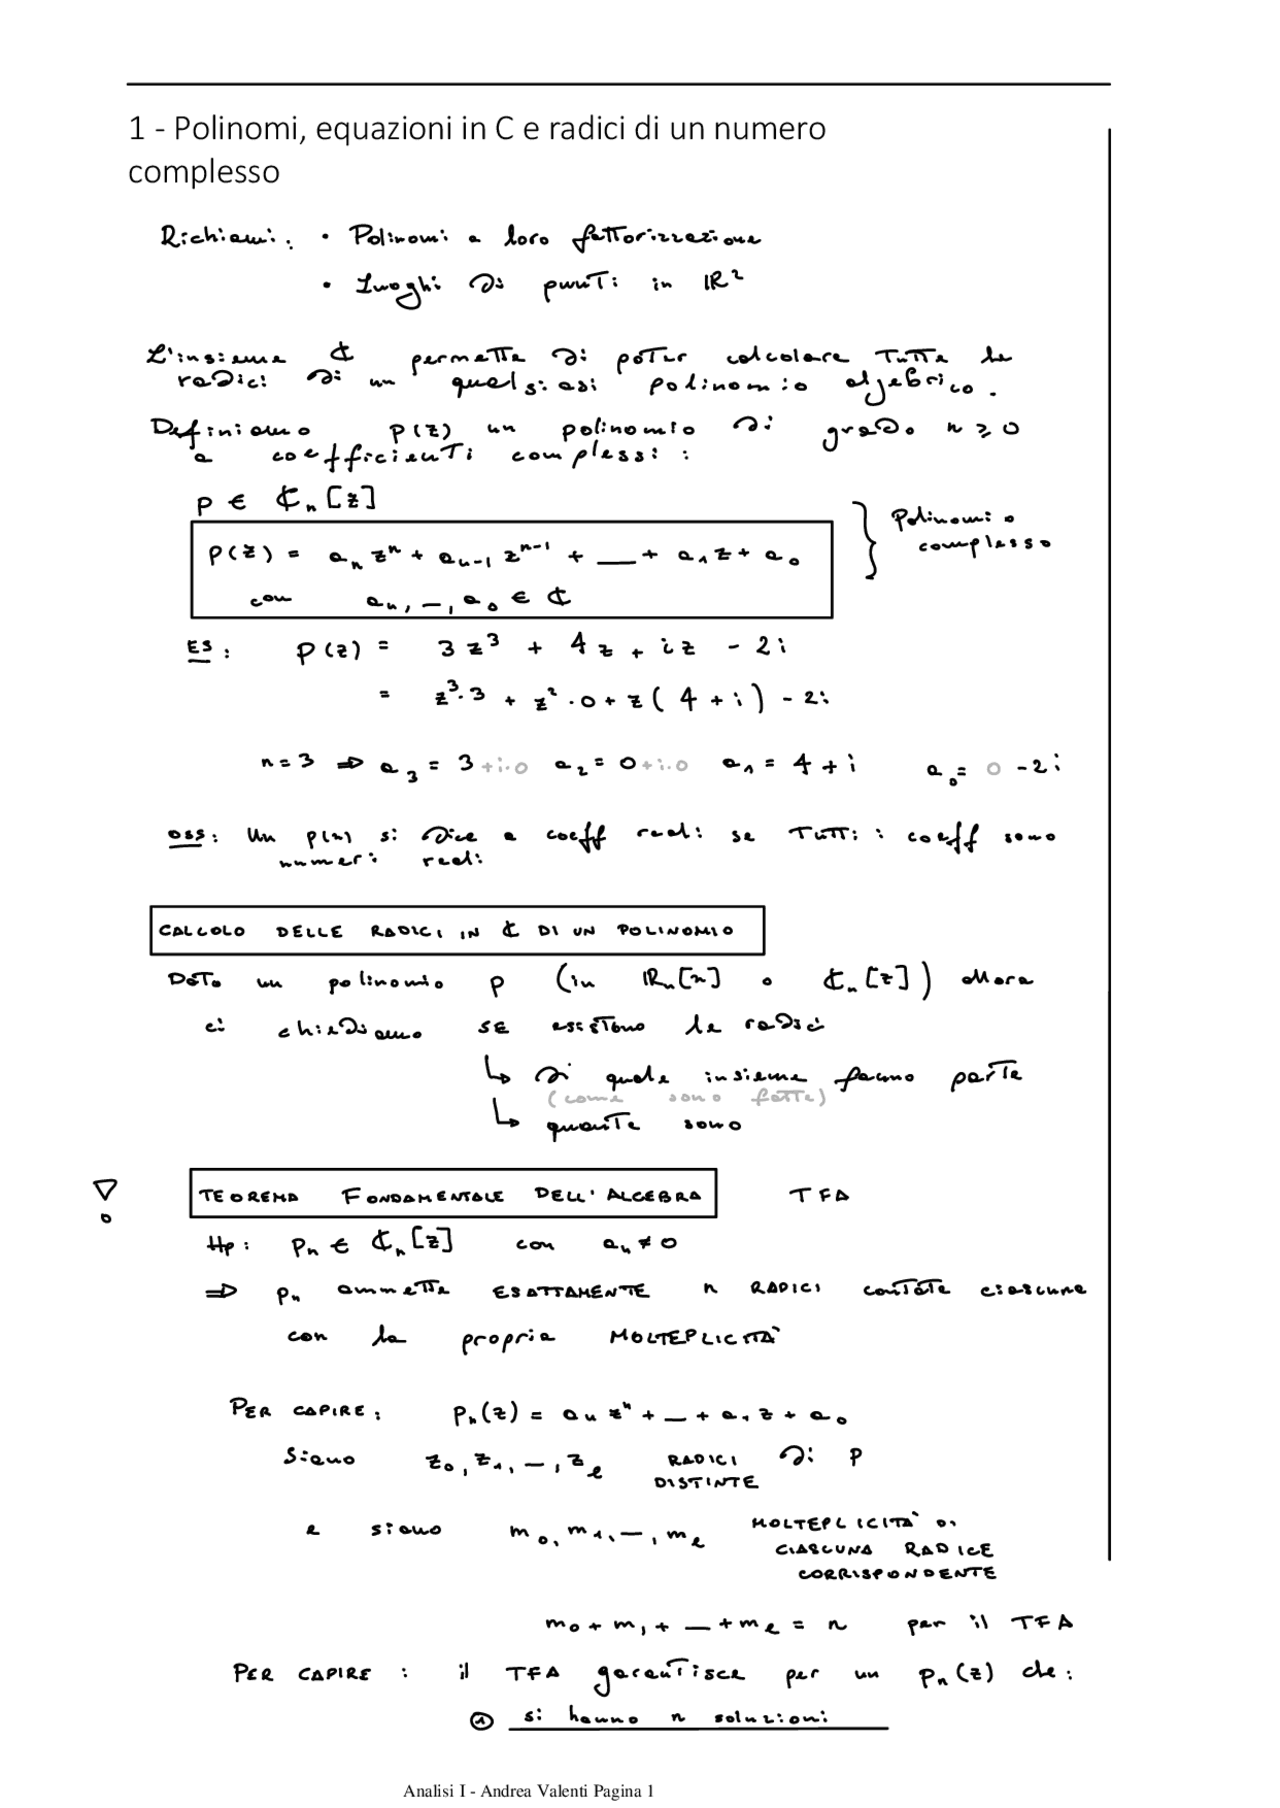 1 - Polinomi, equazioni in C e radici di un numero
complesso
Richiami: • Polinomi e loro fattorizzazione
• Luoghi di punti in ℝ²
L'insieme ℂ permette di poter calcolare tutte le
radici di un qualsiasi polinomio algebrico.
Definiamo p(z) un polinomio di grado n ≥ 0
a coefficienti complessi:
p ∈ ℂₙ[z]
p(z) = aₙ zⁿ + aₙ₋₁ zⁿ⁻¹ + __ + a₁z + a₀
con aₙ, –, a₀ ∈ ℂ
} Polinomio
complesso
ES: p(z) = 3z³ + 4z + iz - 2i
= z³·3 + z²·0 + z(4 + i) - 2i
n = 3 ⇒ a₃ = 3 +i·0 a₂ = 0 +i·0 a₁ = 4 + i a₀ = 0 - 2i
OSS: Un p(x) si dice a coeff reali se tutti i coeff sono
numeri reali
CALCOLO DELLE RADICI IN ℂ DI UN POLINOMIO
Dato un polinomio p (in ℝₙ[x] o ℂₙ[z]) allora
ci chiediamo SE esistono le radici
↳ di quale insieme fanno parte
(come sono fatte)
↳ quante sono
TEOREMA FONDAMENTALE DELL'ALGEBRA TFA
Hp: pₙ ∈ ℂₙ[z] con aₙ ≠ 0
⇒ pₙ ammette ESATTAMENTE n RADICI contate ciascuna
con la propria MOLTEPLICITÀ
PER CAPIRE: pₙ(z) = aₙ zⁿ + __ + a₁z + a₀
Siano z₀, z₁, –, zₑ RADICI di p
DISTINTE
e siano m₀, m₁, –, mₑ MOLTEPLICITÀ DI
CIASCUNA RADICE
CORRISPONDENTE
m₀ + m₁ + __ + mₑ = n per il TFA
PER CAPIRE : il TFA garantisce per un pₙ(z) che:
① si hanno n soluzioni
Analisi I - Andrea Valenti Pagina 1